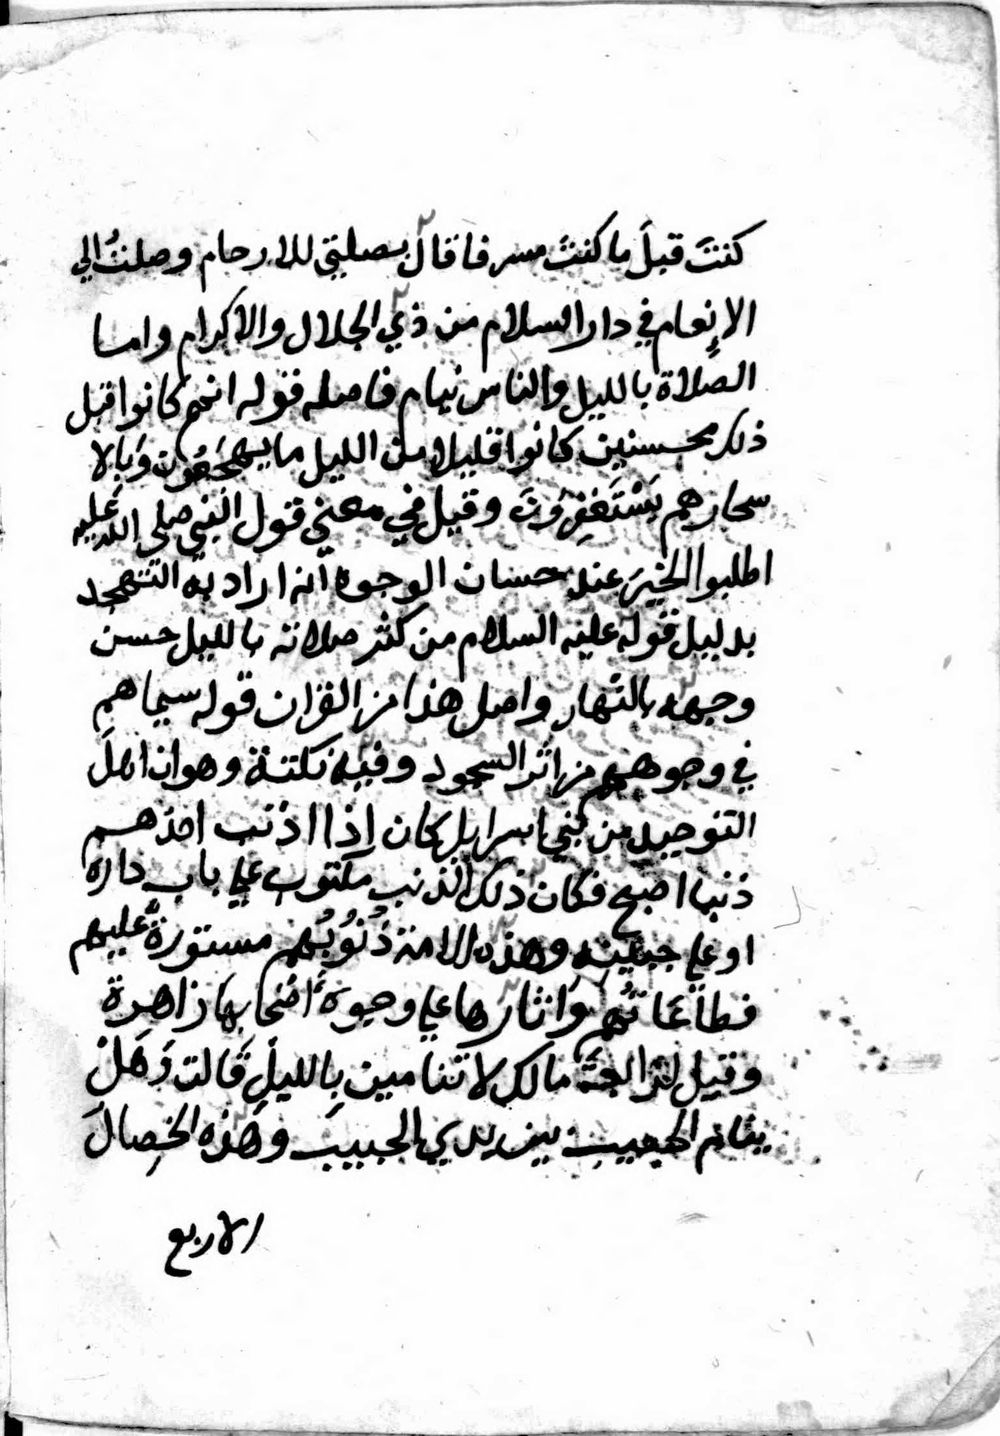 كنتَ قبلَ ما كنتَ مسرفا قال بصلتي للارحام وصلتُ الي
الاِنعام في دار السلام من ذي الجلال والاكرام واما
الصلاة بالليل والناس نيام فاصله قوله انهم كانوا قبل
ذلك محسنين كانوا قليلا من الليل ما يهجَعُون وَبالا
سحارهم يَسْتَغفِرُونَ وقيل في معني قول النبي صلي الله عليه
اطلبوا الخيرَ عند حسان الوجوه انه اراد به التهجد
بدليل قوله عليه السلام من كثر صلاته بالليل حسن
وجهه بالنهار واصل هذا من القران قوله سيماهم
في وجوههم من اثر السجود وفيه نكتة وهو ان اهلَ
التوحيد من بني اسرايل كان إذا اذنب احدُهم
ذنبا اصبح فكان ذلك الذنب مكتوب علي باب داره
او علي جبينه وهذه الامة ذُنُوبُهم مستورةٌ عليهم
فطاعَاتُهم وَاثارُها علي وجوه اصْحابها زاهرة
وقيل لمرا لجنة مالك لا تنامين بِالليلِ قَالت وَهَلْ
ينام الحبيب بين يدي الحبيب وهَذه الخِصالَ
الاربع